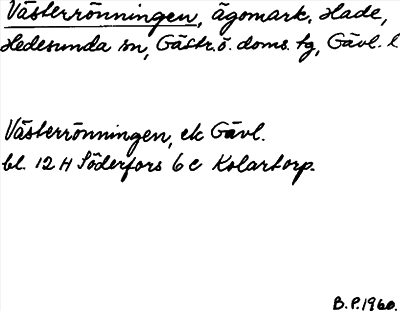 Västerrönningen, ägomark, Hade,
Hedesunda sn, Gästr.ö. doms. tg, Gävl. l
Västerrönningen, ek Gävl.
bl. 12 H Söderfors 6 c Kolartorp.
B.P.1960.